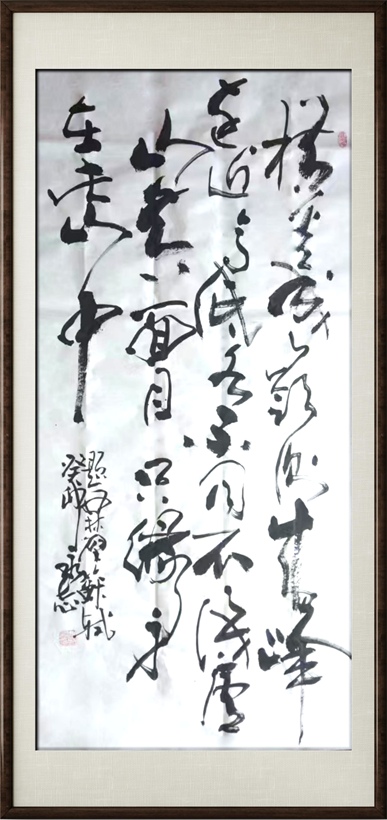 横看成岭侧成峰
远近高低各不同不识庐
山真面目只缘身
在此山中
题西林壁苏轼
癸卯永志